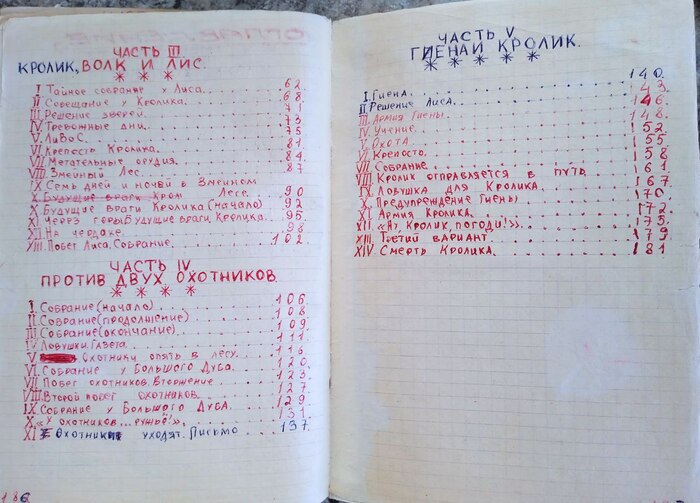 ЧАСТЬ III
КРОЛИК, ВОЛК И ЛИС
* * *
I Тайное собрание у Лиса. 62
II Совещание у Кролика. 68
III Решение зверей 71
IV Тревожные дни. 73
V ЛиВоС. 75
VI Крепость Кролика. 81
VII Метательные орудия. 84
VIII Змеиный Лес. 87
IX Семь дней и ночей в Змеином
Лесе. 90
X Будущие враги Кролика (начало) 92
XI Через горы. Будущие враги Кролика. 95
XII На чердаке. 98
XIII. Побег Лиса. Собрание. 102.
ЧАСТЬ IV
ПРОТИВ ДВУХ ОХОТНИКОВ.
* * * *
I. Собрание (начало) 106
II Собрание (продолшение) 108
III Собрание (окончание) 109
IV Ловушки. Газета. 111
V Охотники опять в лесу. 116
VI. Собрание у Большого Дуба. 120
VII Побег охотников. Вторжение 123
VIII. Второй побег охотников. 127
IX Собрание у Большого Дуба. 129
X. «У охотников... ружьё!». 131
XI Охотники уходят. Письмо 137.
186
ЧАСТЬ V
ГИЕНА И КРОЛИК.
* * * * *
I. Гиена. 140.
II. Решение Лиса. 143
III. Армия Гиены. 146
IV. Учение. 148
V. Охота 152
VI. Крепость. 155
VII Собрание 158
VIII. Кролик отправляется в путь. 161
IX Ловушка для Кролика. 167
X. Предупреждение Гиены. 170
XI Армия Кролика. 172
XII «Ну, Кролик, погоди!». 175
XIII Третий вариант. 179
XIV. Смерть Кролика. 181